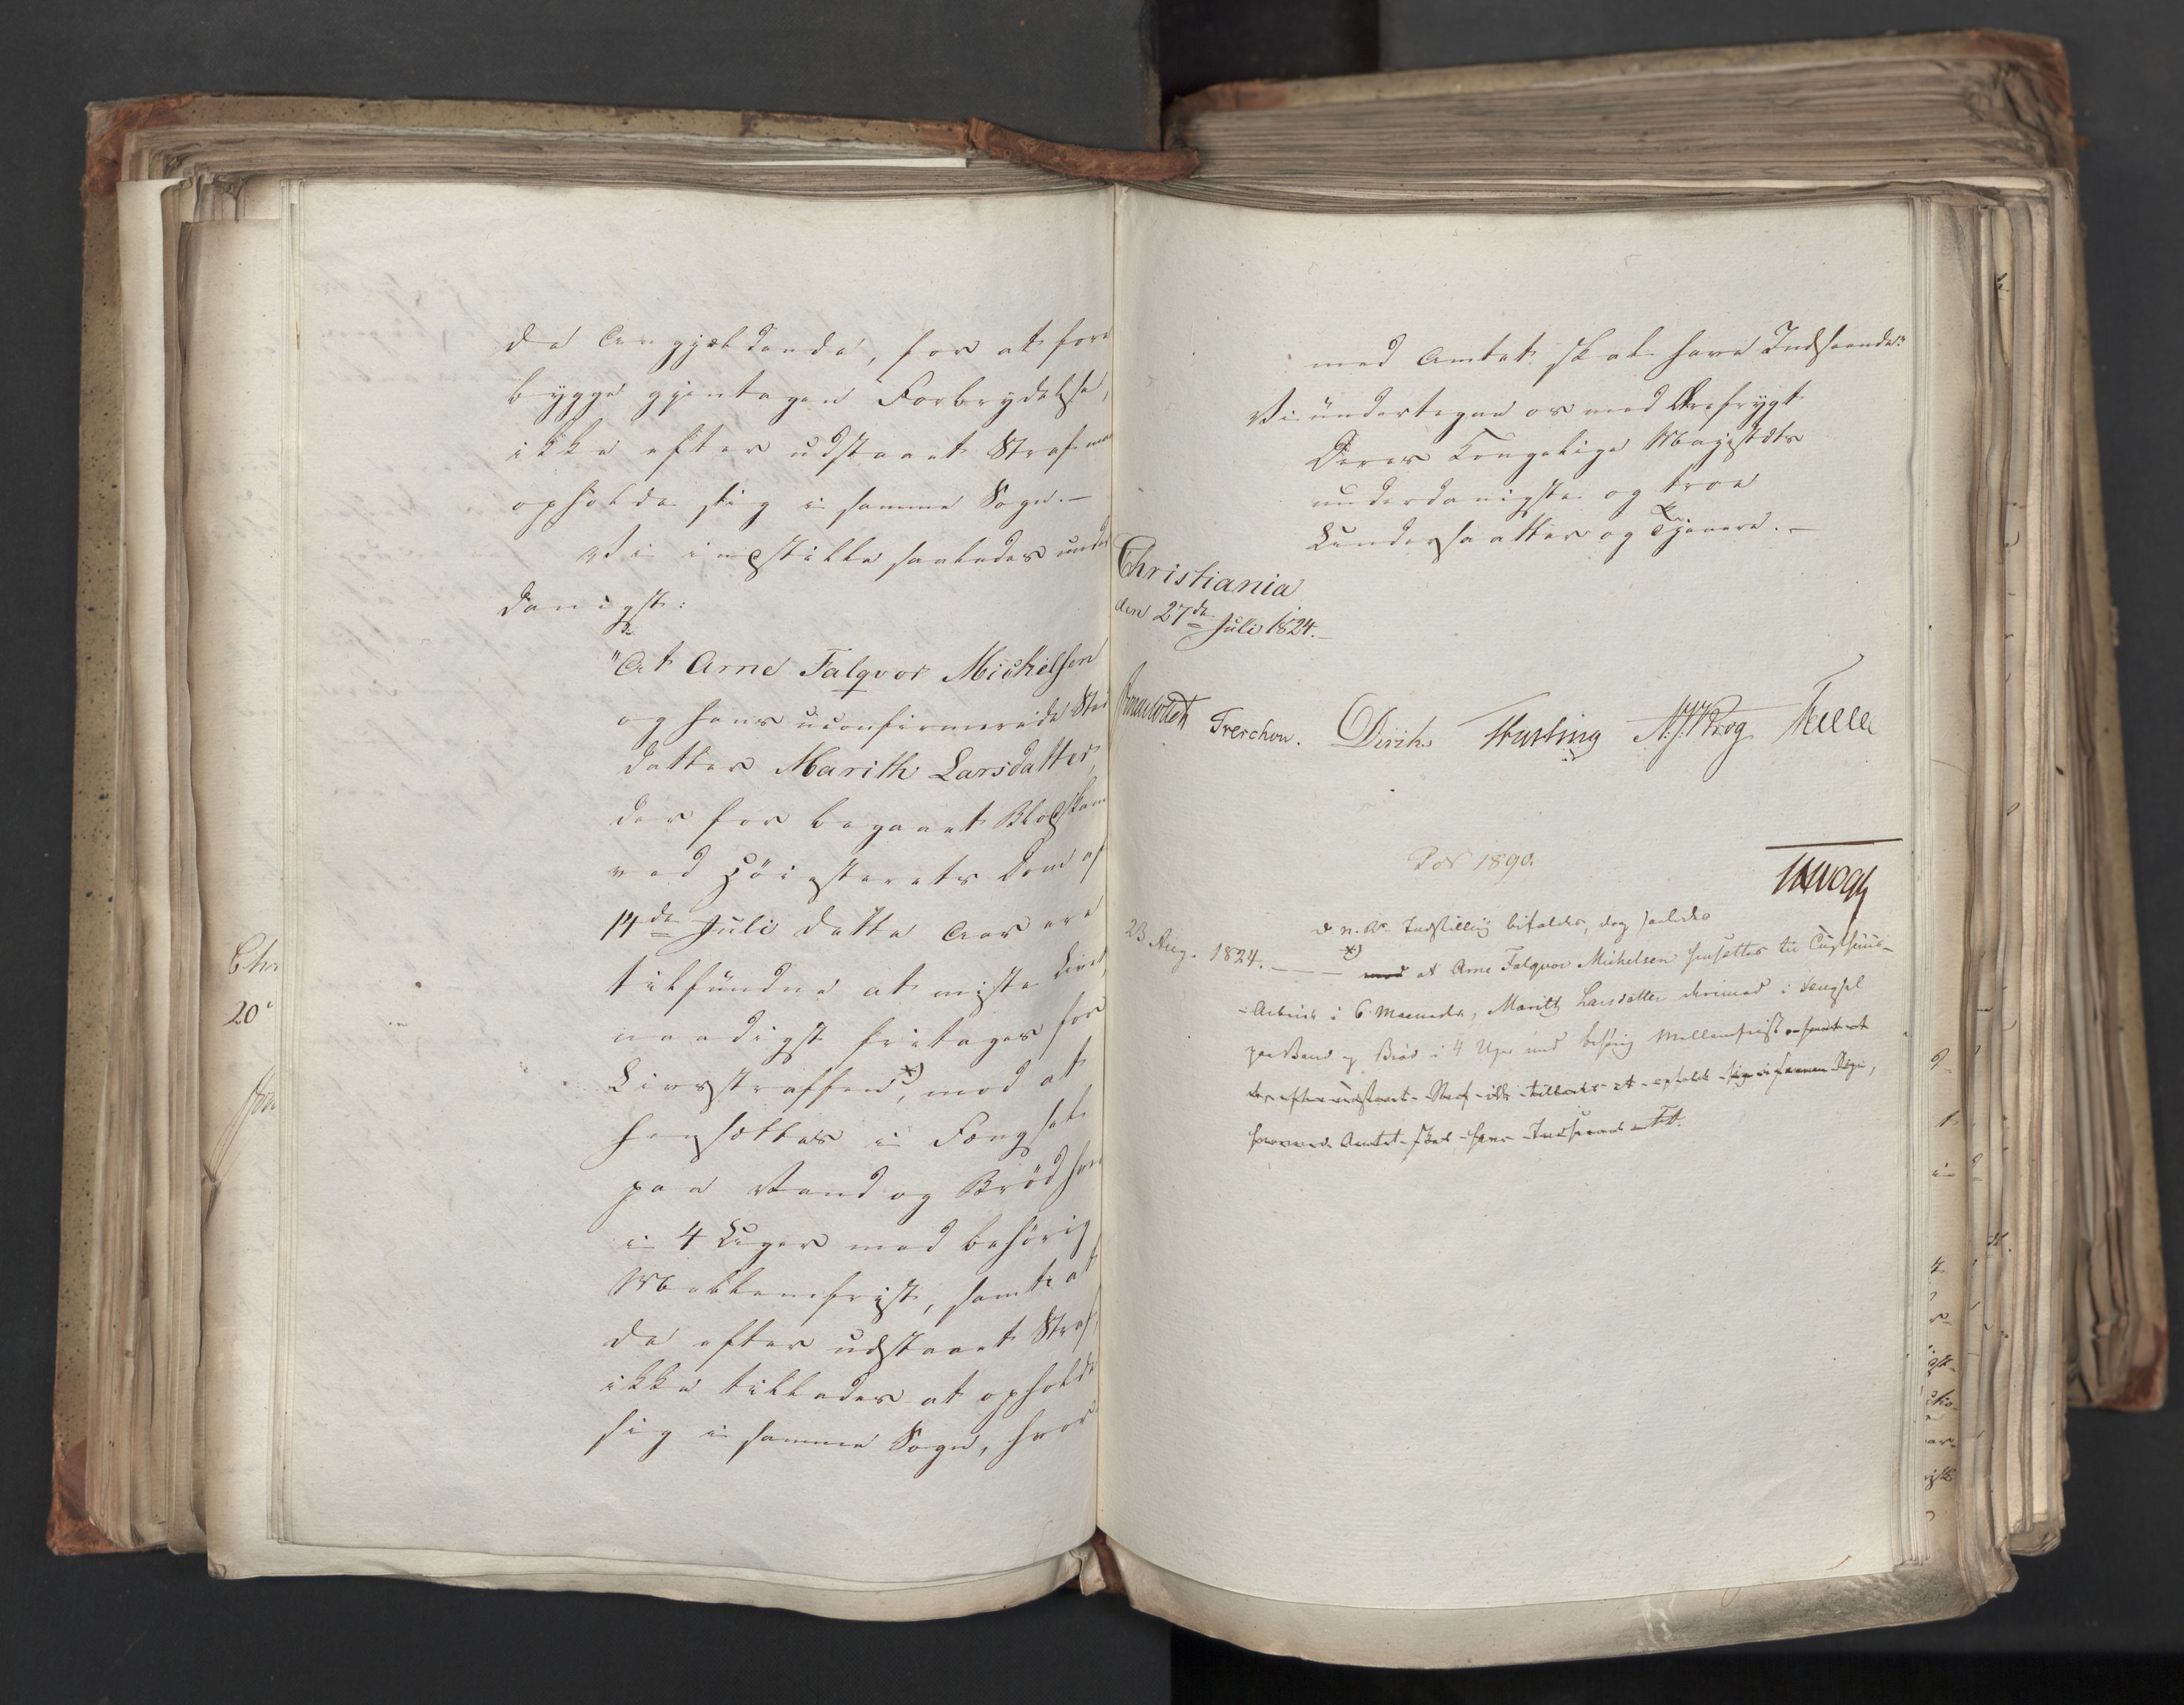 de Angjældende, for at fore
bygge gjentagen Forbrydelse,
ikke efter udstaaet Straf maa
opholde sig i samme Sogn. —
Vi indstille saaledes under
danigst:
"At Arne Falqvor Mickelsen
og hans uconfirmerede Sted
datter Marith Larsdatter,
der for begaaet Blodskam
ved Höiesterets Dom af
14de Juli dette Aar ere
tilfundne at miste Livet,
naadigst fritages for
Livsstraffen *), mod at
hensættes i Fængsel
paa Vand og Bröd hver
i 4 Uger med behörig
Mellemfrist, samt at
de efter udstaaet Straf,
ikke tillades at opholde
sig i samme Sogn, hvor
Chr
20
med Amtet skal have Indseende."
Vi undertegne os med Ærefrygt
Deres Kongelige Majestæts
underdanigste og troe
Undersaatter og Tjenere. —
Christiania
den 27de Juli 1824. —
Treschow. Diriks Krog
No 1890.
23 Aug. 1824. — — — Indstilling bifaldes, dog saaledes
*) med at Arne Falqvor Michelsen hensættes til Tugthuus-
-Arbeide i 6 Maaneder, Marith Larsdatter derimod i Fængsel
paa Vand og Bröd i 4 Uger med behörig Mellemfrist samt at
de efter udstaaet Straf ikke tillades at opholde sig i samme Sogn,
hvormed Amtet skal have Indseende